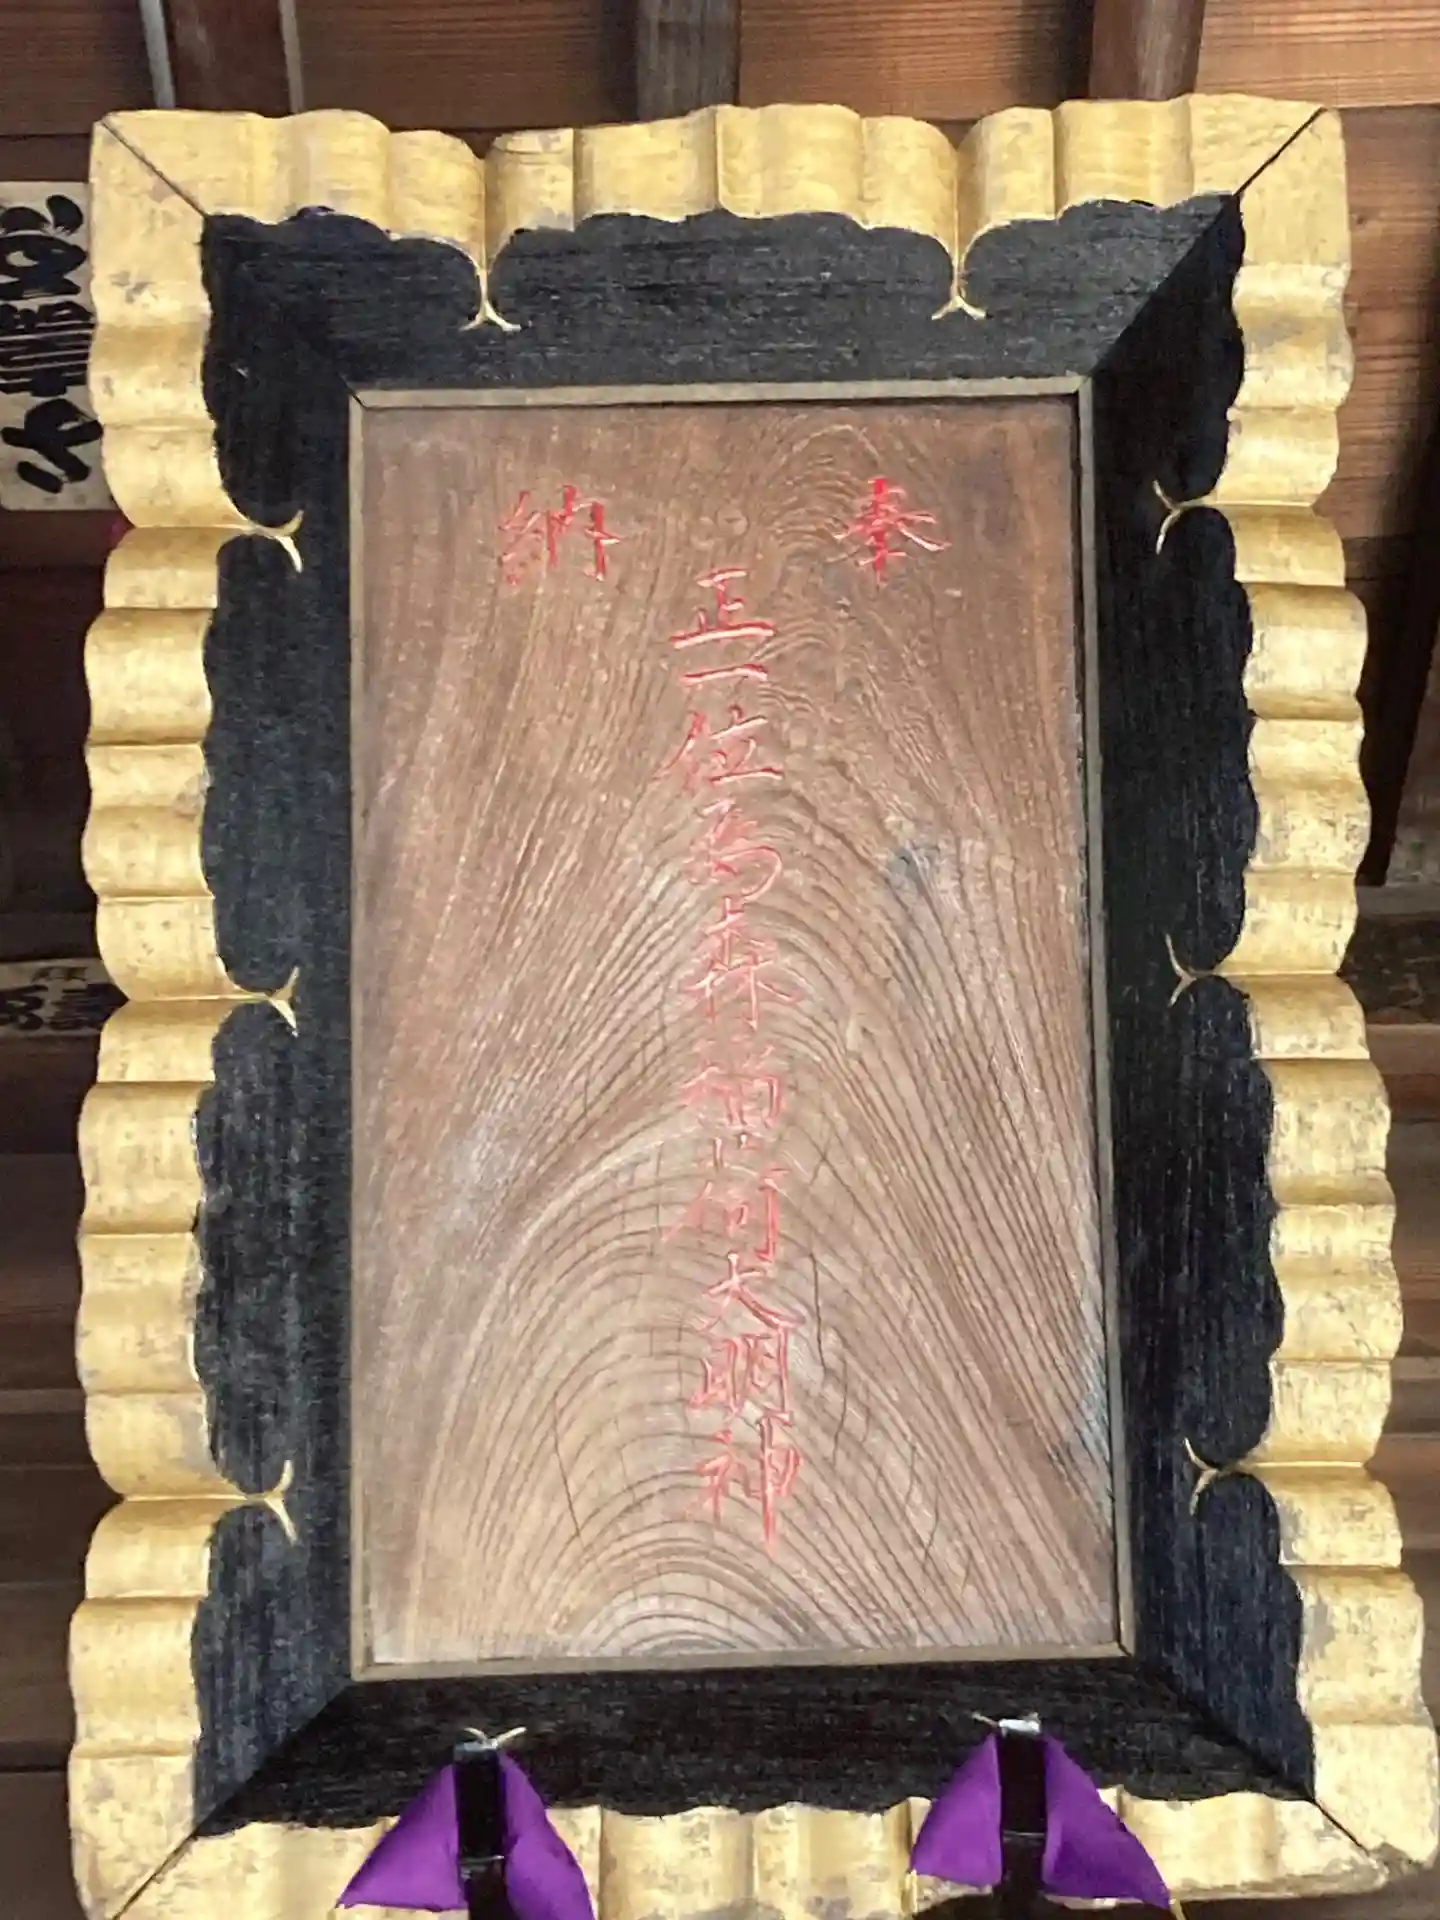 奉納
正一位烏森稲荷大明神